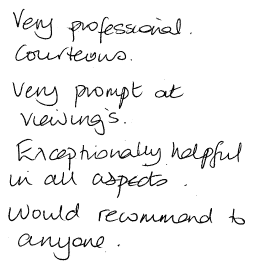 Very professional.
Courteous.
Very prompt at
viewing's.
Exceptionally helpful
in all aspects.
Would recommend to
anyone.